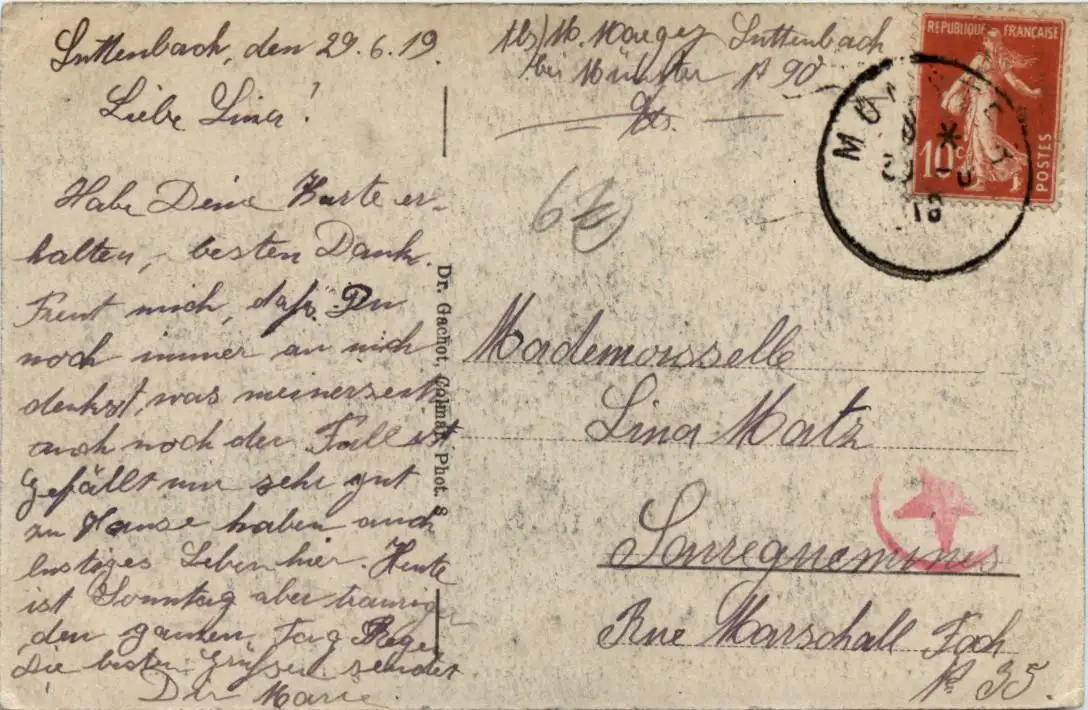 Luttenbach, den 29.6.19.
Liebe Lina!
Habe Deine Karte er-
halten, besten Dank.
Freut mich, daß Du
noch immer an mich
denkst, was meinerseits
auch noch der Fall ist
Gefällt mir sehr gut
zu Hause haben auch
lustiges Leben hier. Heute
ist Sonntag aber traurig
den ganzen Tag Rege
die besten Grüssen sendet
Dir Marie
Abs/ M. Luttenbach
bei Münster № 90
Els.
Dr. Gachot, Colmar Phot. 8
REPUBLIQUE FRANÇAISE
10c
POSTES
Mademoiselle
Lina Matz
Sarreguemines
Rue Marschall Foch
№ 35.